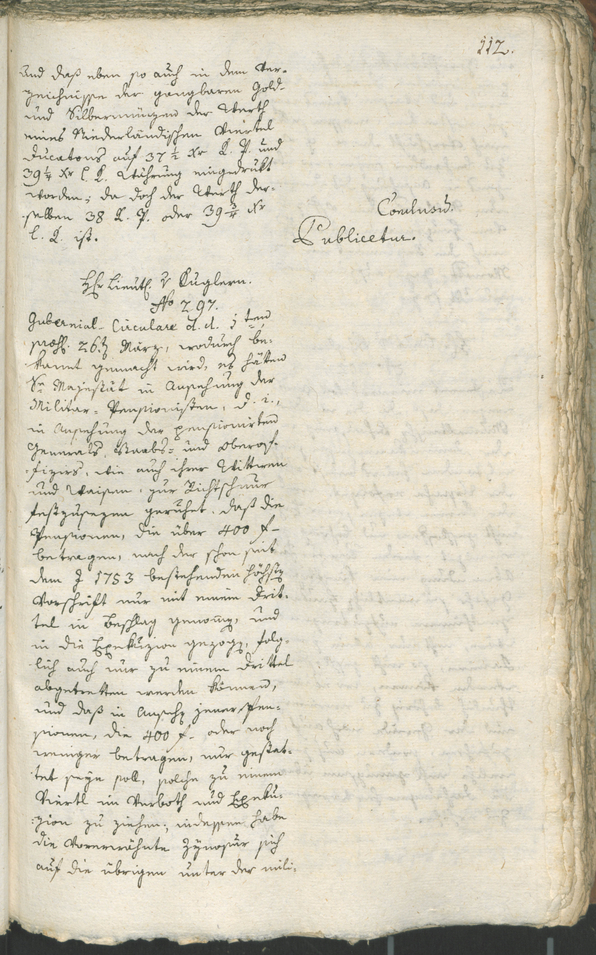 112.
und daß eben so auch in dem Ver-
zeichnisse der gangbaren Gold-
und Silbermünzen der Werth
eines Niederländischen Viertel
Ducatons auf 37 1/2 Xr K. P. und
39 1/4 Xr C. K. Währung eingedrukt
worden; da doch der Werth der-
selben 38 K. P. oder 39 Xr
C. K. ist.
Conclusũ.
Publicetur.
Hr Lieut. v Kuglern.
No 297.
Gubernial-Circulare d. d. 5ten
præs. 26t März, wodurch be-
kannt gemacht wird, es hätten
Se Majestät in Ansehung der
Militar-Pensionisten, d. i.,
in Ansehung der pensionirten
Generals, Staabs- und Oberof-
fiziers, wie auch ihrer Wittwen
und Waisen, zur Richtschnur
festzusezen geruhet, daß die
Pensionen, die über 400 f
betragen, nach der schon seit
dem J 1753 bestehenden höchsten
Vorschrift nur mit einem Drit-
tel in Beschlag genom̃en, und
in die Exekuzion gezogen, folg-
lich auch nur zu einem Drittel
abgetretten werden können,
und daß in Ansehg jener Pen-
sionen, die 400 f oder noch
weniger betragen, nur gestat-
tet seyn soll, solche zu einem
Viertl im Verboth und Exeku-
zion zu ziehen; indessen habe
die Vorerwähnte Zynosur sich
auf die übrigen unter der mili-